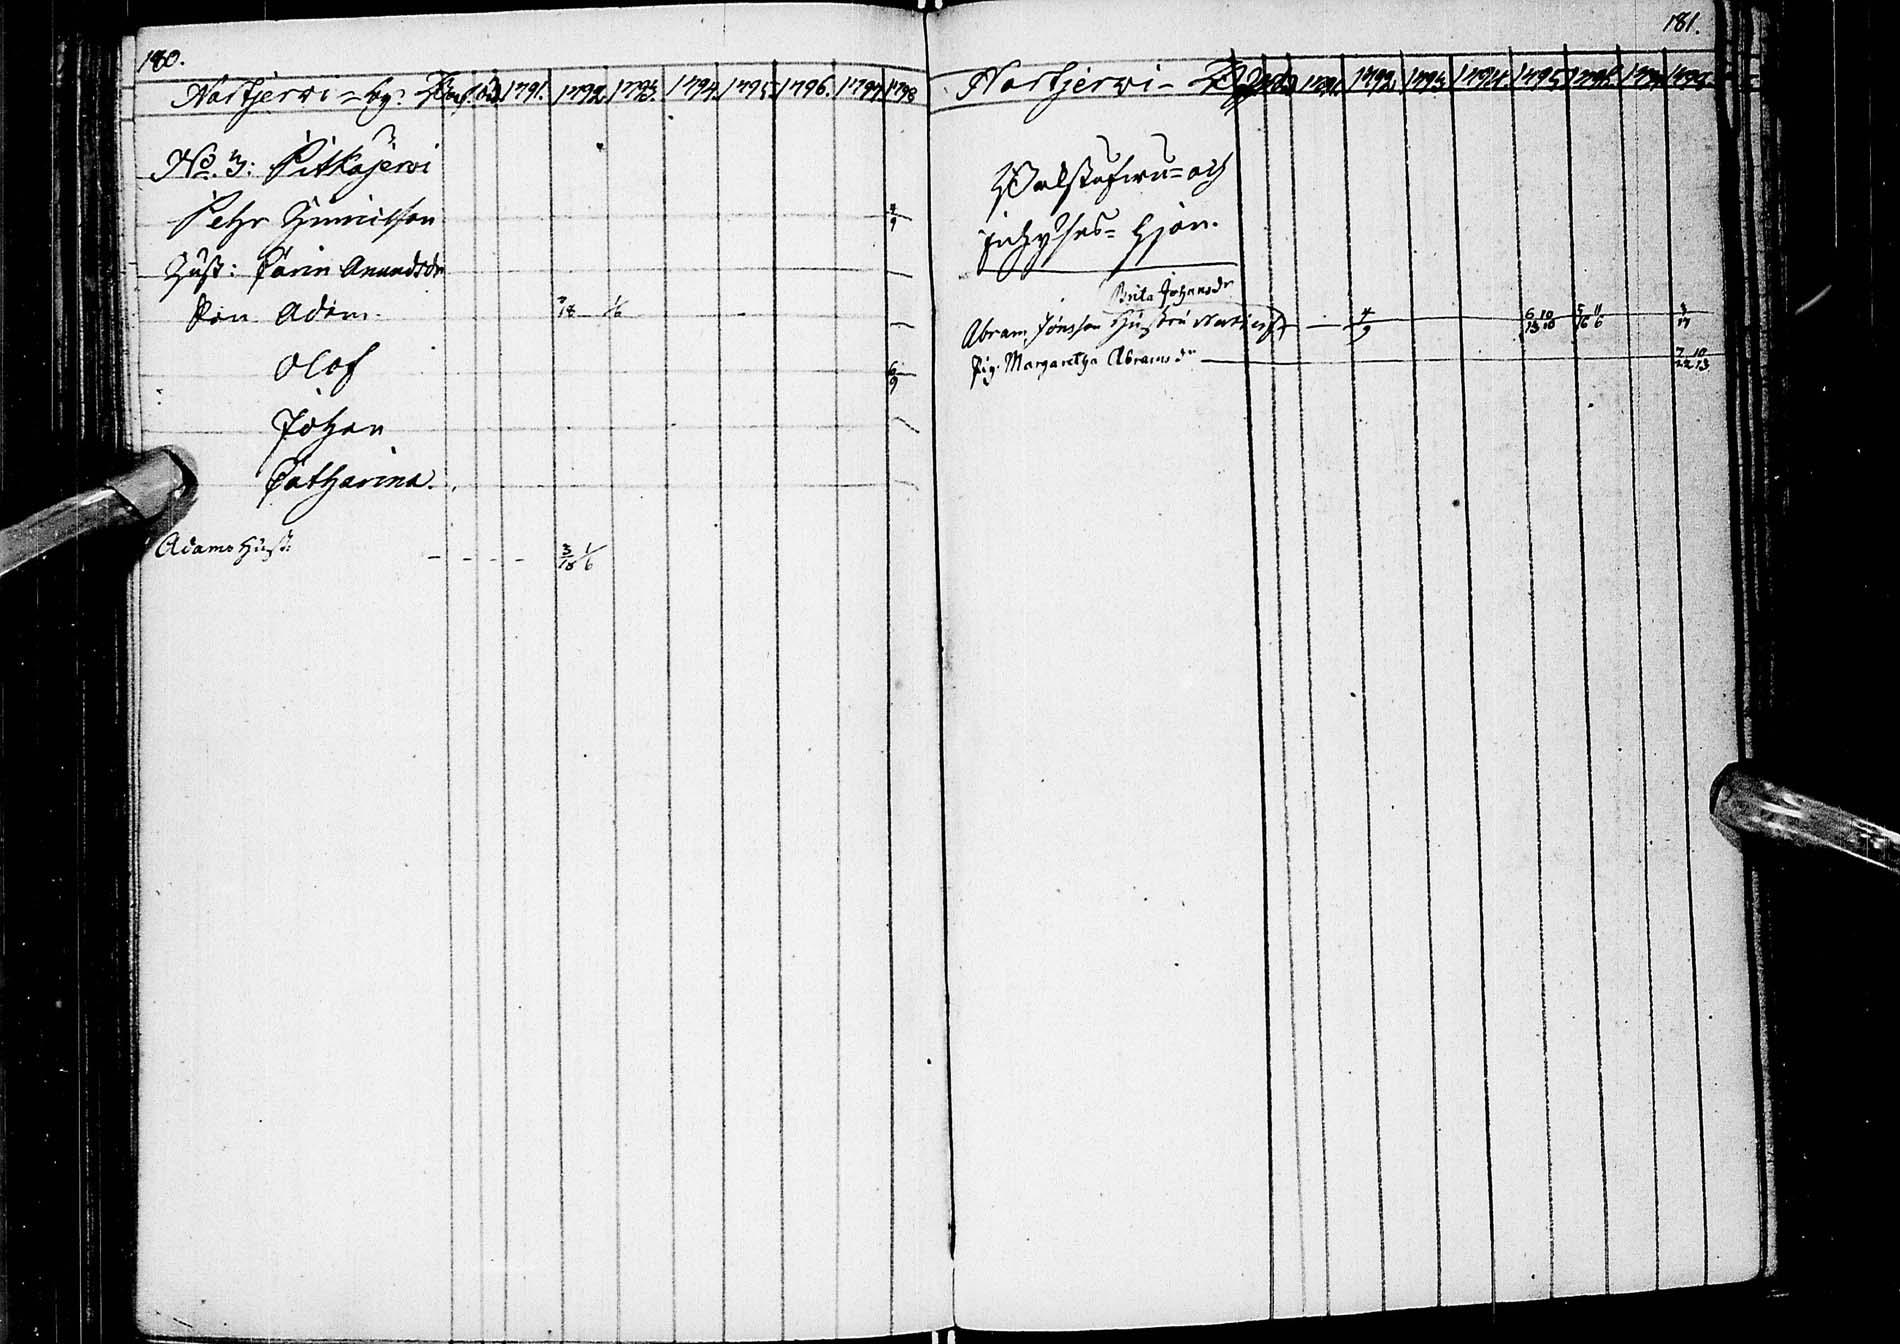 180.
Narkjerwi-by. 1791. 1792. 1793. 1794. 1795. 1796. 1797. 1798
No. 3: Pitkäjerwi
Pehr 4/9
Hust: Carin Anundsdr
Son Adam. 18 1/6
Olof 6/9
Johan
Catharina.
Adams Hust: 3/18 1/6
181.
Narkjerwi- 1791. 1792. 1793. 1794. 1795. 1796. 1797. 1798.
och
Inhyses-Hjon.
Brita Johansdr
Abram Jönsson Hustru 4/9 6/13 10/18 5/16 11/6 3/17
Pig. Margaretha Abramsdr 7/22 10/13